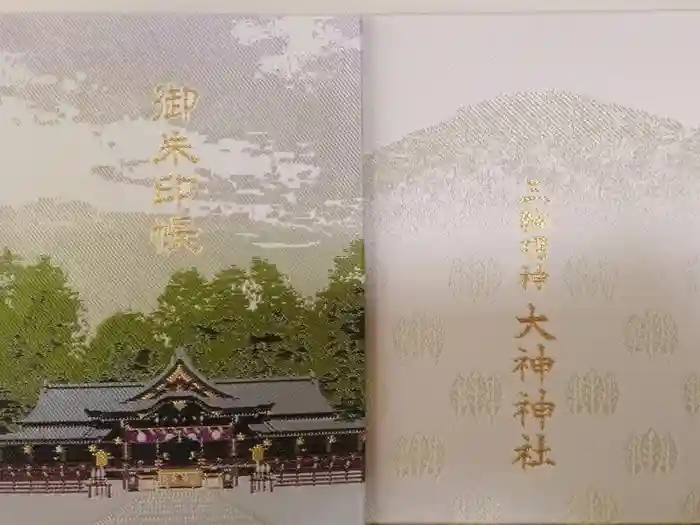 御朱印帳
三輪明神
大神神社